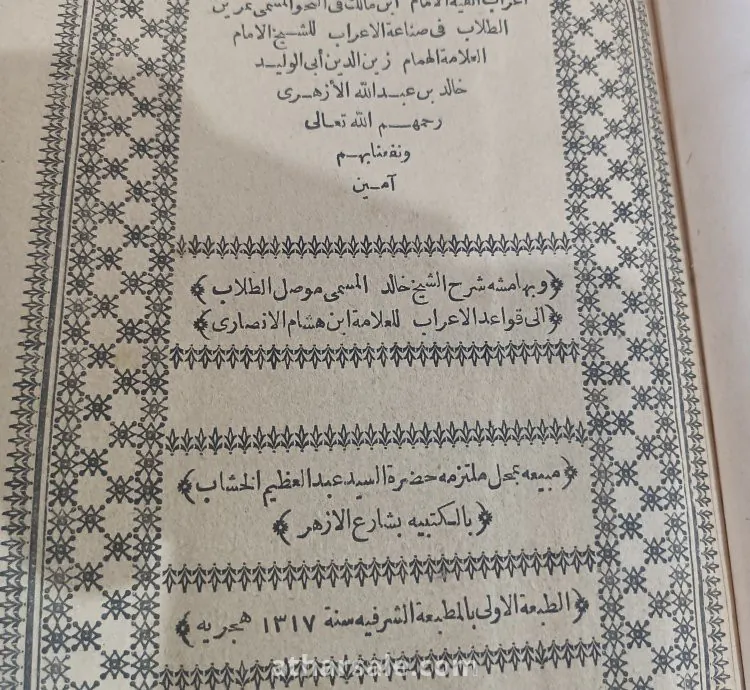 اعراب الفية الامام ابن مالك فى النحو المسمى تمرين
الطلاب فى صناعة الاعراب للشيخ الامام
العلامة الهمام زين الدين أبى الوليد
خالد بن عبد الله الأزهرى
رحمهم الله تعالى
ونفعنا بهم
آمين
وبهامشه شرح الشيخ خالد المسمى موصل الطلاب
الى قواعد الاعراب للعلامة ابن هشام الانصارى
مبيعه بمحل ملتزمه حضرة السيد عبد العظيم الخشاب
بالسكتبيه بشارع الازهر
الطبعة الاولى بالمطبعة الشرفيه سنة ١٣١٧ هجريه
atharsale.com